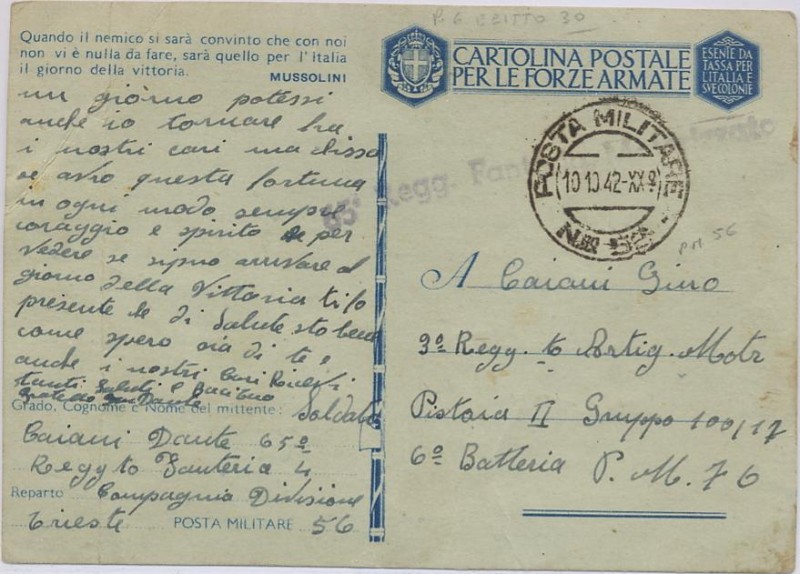 Quando il nemico si sarà convinto che con noi
non vi è nulla da fare, sarà quello per l'Italia
il giorno della vittoria.
MUSSOLINI
un giorno potessi
anche io tornare fra
i nostri cari ma
se avro questa fortuna
in ogni modo sempre
coraggio e spirito per
vedere se arrivare al
giorno della Vittoria ti fo
presente di Salute sto bene
come spero sia di te e
anche i nostri Cari
tanti Saluti e Baci tuo
fratello Dante
Grado, Cognome e Nome del mittente: Soldato
Caiani Dante 65º
Regg to Fanteria 4
Reparto Compagnia Divisione
Trieste POSTA MILITARE 56
P.6 30
CARTOLINA POSTALE
PER LE FORZE ARMATE
ESENTE DA
TASSA PER
L'ITALIA E
SVE COLONIE
65º Regg.
POSTA MILITARE
10 10 42-XX
PM 56
A Caiani Gino
3º Regg. to Artig. Motr
Pistoia II Gruppo 100/17
6º Batteria P. M. 76